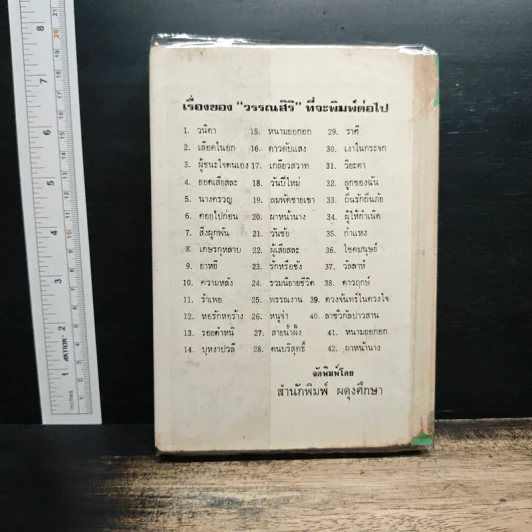 เรื่องของ "วรรณสิริ" ที่จะพิมพ์ต่อไป
1. วนิดา
2. เลือดในอก
3. ผู้ชนะใจตนเอง
4. ยอดเสียสละ
5. นางครวญ
6. คอยไปก่อน
7. สิ่งผูกพัน
8. เกษรกุหลาบ
9. ยาหยี
10. ความหลัง
11. รำเพย
12. หอรักหอร้าง
13. รอยตำหนิ
14. บุหงาปาวลี
15. หนามยอกอก
16. ดาวดับแสง
17. เกลียวสวาท
18. วันปีใหม่
19. ลมพัดชายเขา
20. ผาหน้านาง
21. วันชัย
22. ผู้เสียสละ
23. รักหรือชัง
24. รวมนิยายชีวิต
25. พรรณงาน
26. หนูจ๋า
27. สายน้ำผึ้ง
28. คนบริสุทธิ์
29. ราศี
30. เงาในกระจก
31. วิยะดา
32. ลูกของฉัน
33. ถิ่นรักถิ่นภัย
34. ผู้ให้กำเนิด
35. กำแหง
36. โชคมนุษย์
37. วัลลาห์
38. ดาวฤกษ์
39. ดวงจันทร์ในดวงใจ
40. ลาชีวีกัลปาวสาน
41. หนามยอกอก
42. ผาหน้านาง
จัดพิมพ์โดย
สำนักพิมพ์ ผดุงศึกษา